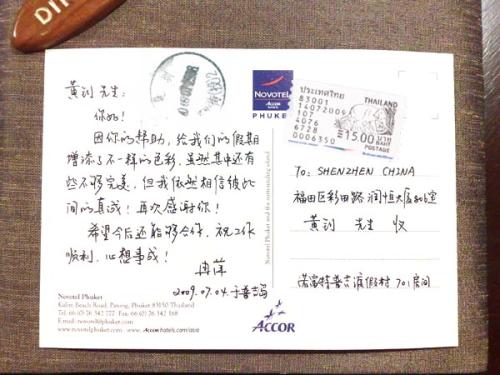 黄训 先生:
你好!
因你的帮助，给我们的假期
增添了不一样的色彩，虽然其中还有
些不够完美，但我依然相信彼此
间的真诚! 再次感谢你!
希望今后还能够合作，祝工作
顺利、心想事成!
2009.07.04.于普吉岛
Novotel Phuket
Kalim Beach Road, Patong, Phuket 83150 Thailand
Tel: 66 (0) 76 342 777 Fax: 66 (0) 76 342 168
E-mail: novotel@phuket.com
www.novotelphuket.com www.Accorhotels.com/asia
NOVOTEL
ACCOR hotels
PHUKET
Novotel Phuket and the surrounding island
ประเทศไทย
83001
14072009
107
4076
6728
0006350
THAILAND
15.00
บาท
BAHT
POSTAGE
To: SHENZHEN CHINA
福田区彩田路润恒大厦
黄训 先生 收
诺富特普吉度假村 701房间
ACCOR